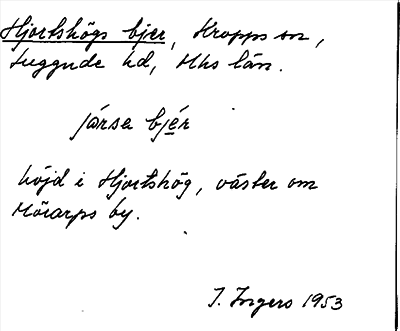 Hjortshögs bjer, Kropps sn,
Luggude hd, Mhs län.
järsa bjér
höjd i Hjortshög, väster om
Mörarps by.
I. Ingers 1953